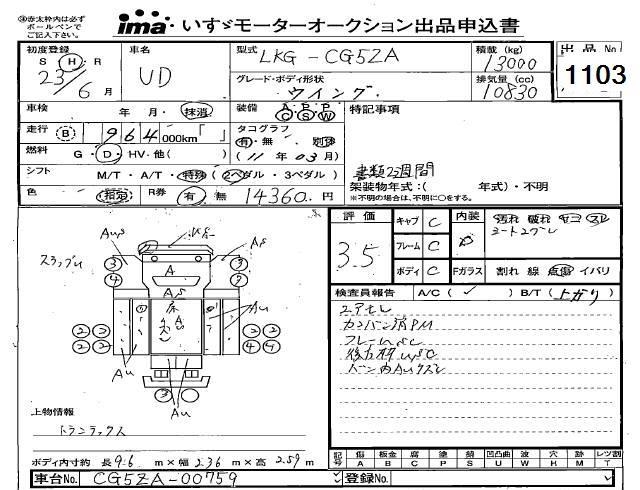 ※赤太枠内は必ず
ボールペンで
ご記入下さい。
ima いすゞモーターオークション出品申込書
初度登録
S H・R
23年6月
車名
UD
型式
LKG-CG5ZA
積載(kg)
13000
出品No
1103
グレード・ボディ形状
ウイング
排気量(cc)
10830
車検 年 月・抹消
装備 A・P・P
C S W
特記事項
走行 B 1964000km「 」
タコグラフ
有・無 別体
(11年03月)
燃料 G・D・HV・他( )
書類2週間
シフト M/T・A/T・特殊(2ペダル・3ペダル)
架装物年式:( 年式)・不明
※不明の場合は、不明に○をする。
色 指定 R券 有 無 14360円
評価
3.5
キャブ C
フレーム C
ボディ C
内装
D
汚れ 破れ
Fガラス 割れ 線 点傷 イバリ
検査員報告 A/C(✓) B/T(上がり)
エアセレ
フレームSC
Au AS
A
AS
Au
Au Au
3 3
4
2 2 2 2
2 2 4 4
3
上物情報
トランテックス
ボディ内寸約 長9.6m×幅2.36m×高2.59m
記号 傷A 板金B 腐C 塗P 錆S 凹凸曲U 波W 穴H 跡M レツ割T
車台No. CG5ZA-00759
登録No.